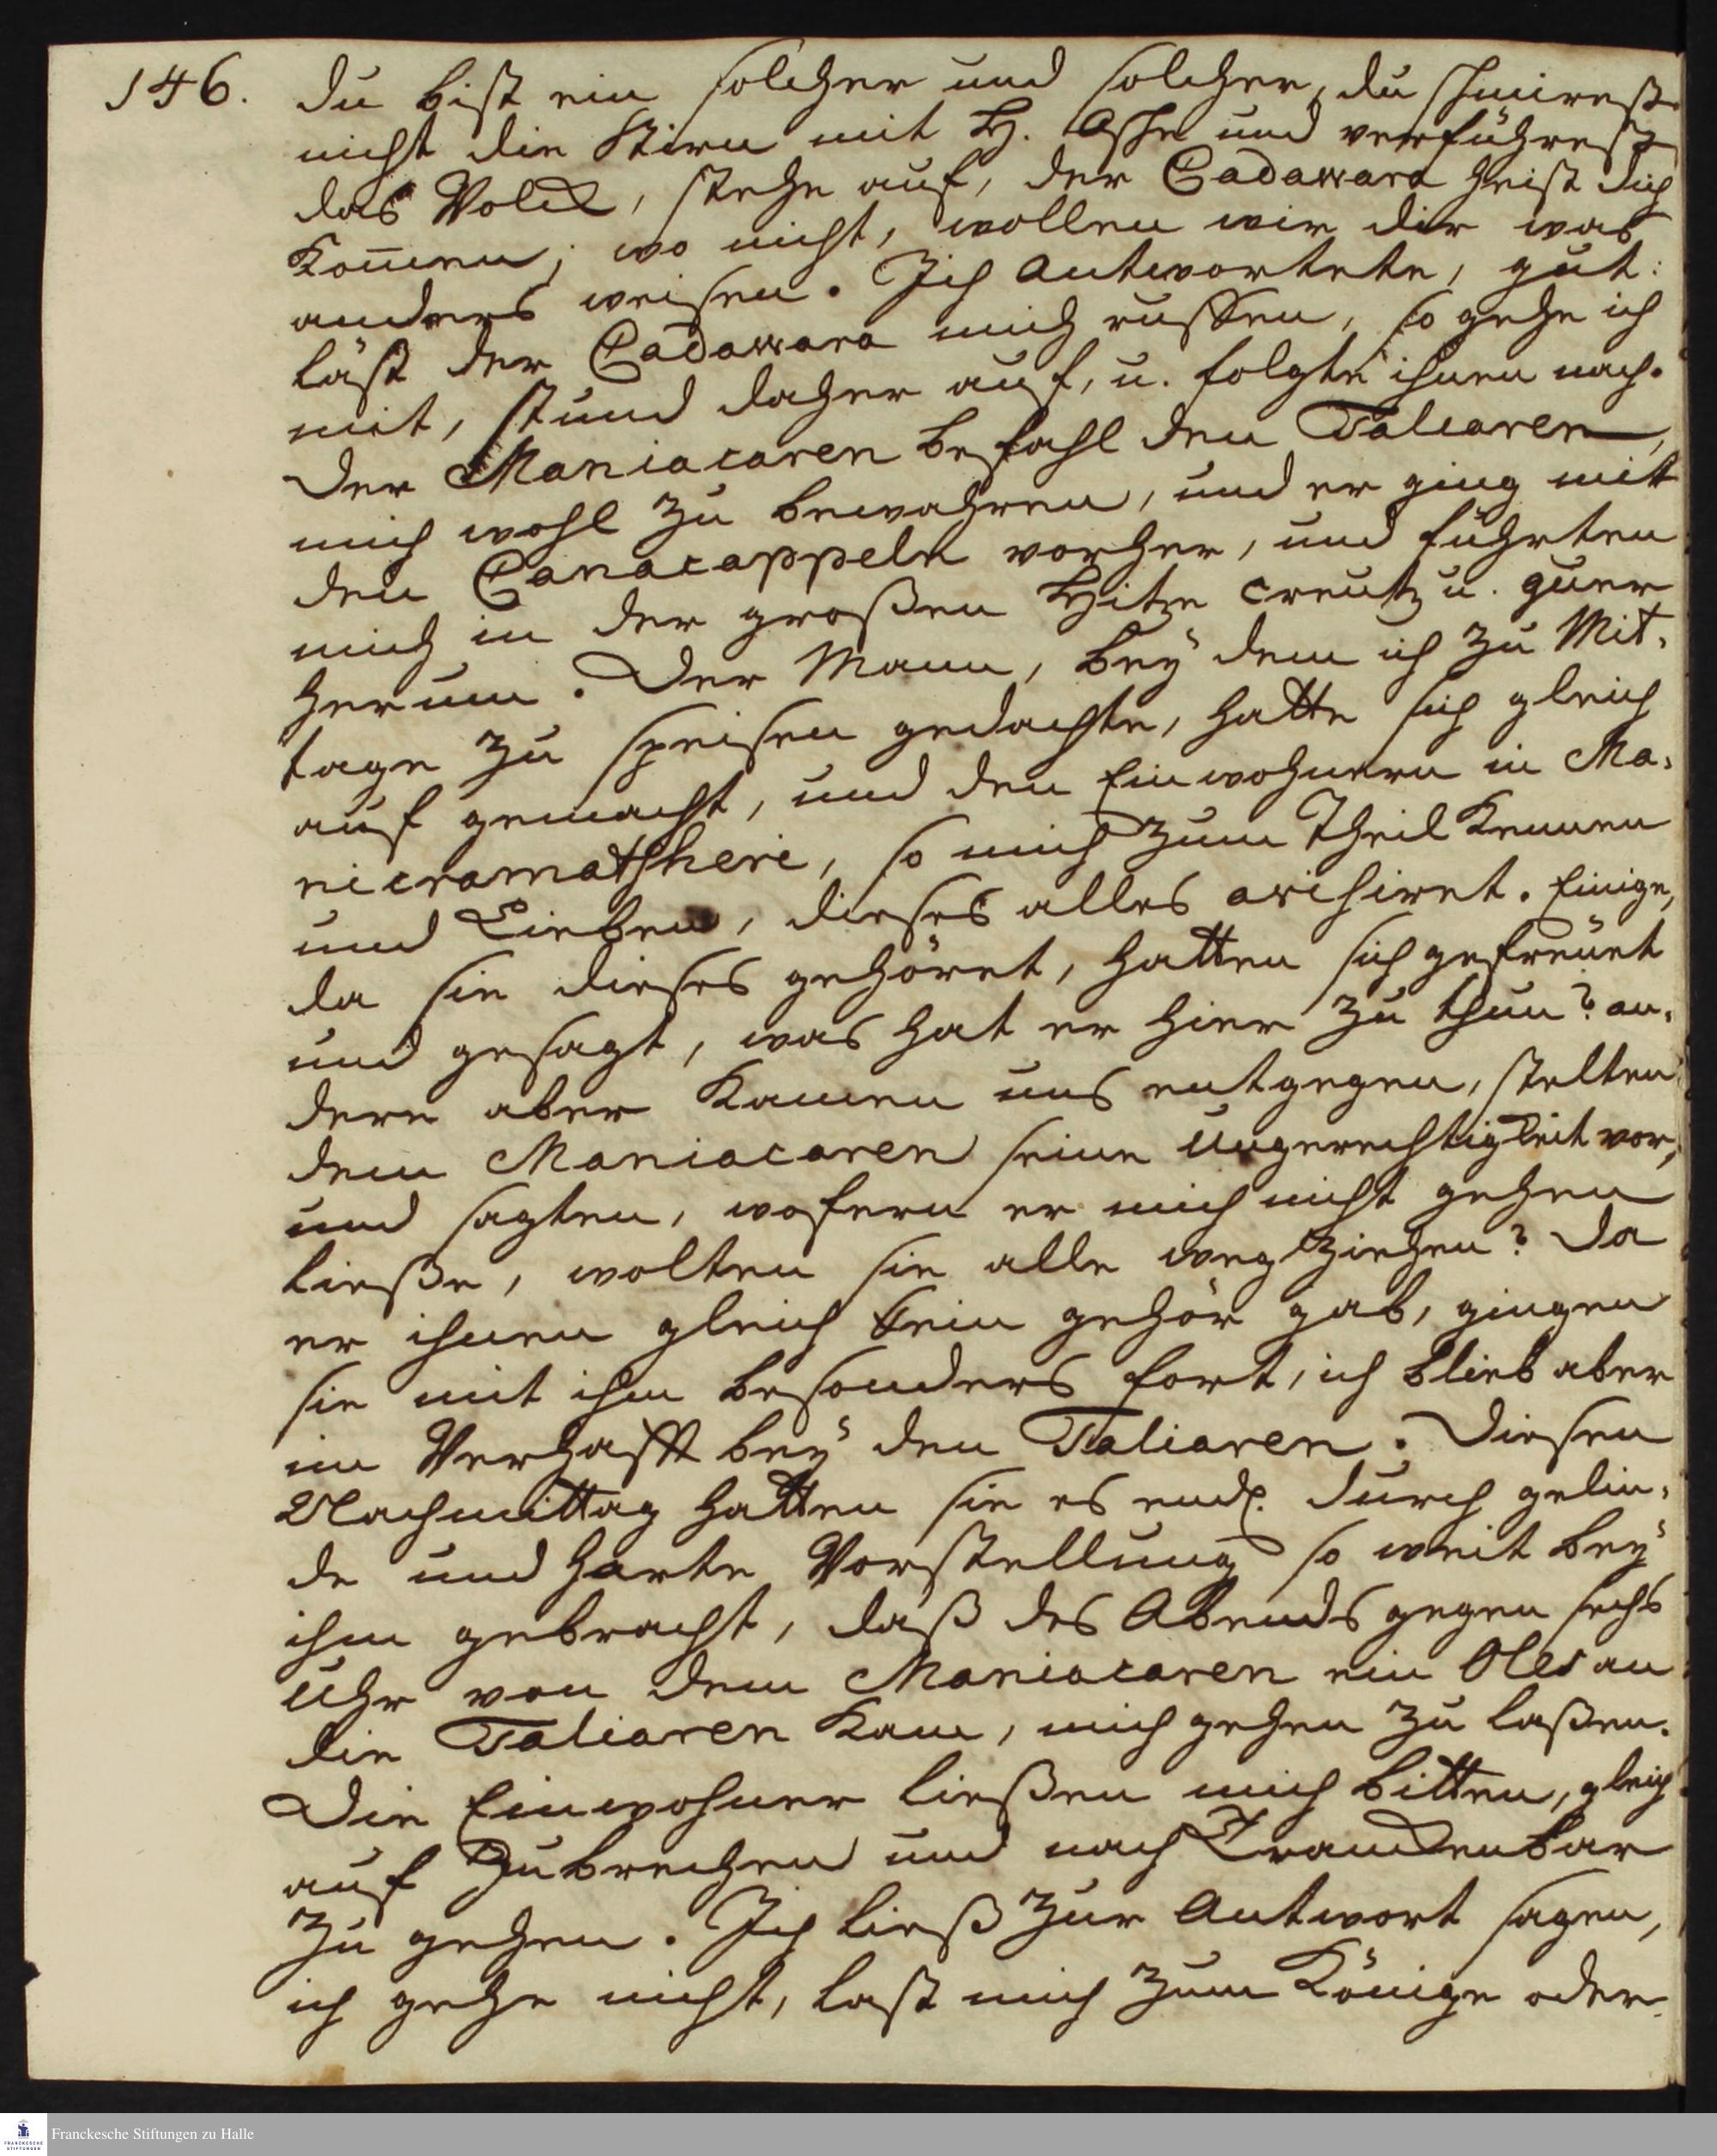 146.
du bist ein solcher und solcher, du schmierest
nicht die Stirn mit H. Asche und verführest
das Volck, stehe auf, der Cadawara heist dich
kom̅en, wo nicht, wollen wir dir was
anders weisen. Ich antwortete, gut:
läst der Cadawara mich ruffen, so gehe ich
mit, stund daher auf, u. folgte ihnen nach.
Der Maniacaren befahl den Taliaren,
mich wohl zu bewahren, und er ging mit
den Canacappeln vorher, und führten
mich in der großen Hitze creutz u. quer
herum. Der Mann, bey dem ich zu Mit-
tage zu speisen gedachte, hatte sich gleich
auf gemacht, und den Einwohnern in Ma-
nicramatscheri, so mich zum Theil kennen
und Lieben, dieses alles avisiret. Einige,
da sie dieses gehöret, hatten sich gefreuet
und gesagt, was hat er hier zu thun? an-
dere aber kamen uns entgegen, stelten
dem Maniacaren seine Ungerechtigkeit vor,
und sagten, wofern er mich nicht gehen
ließe, wolten sie alle weg ziehen? Da
er ihnen gleich kein gehör gab, gingen
sie mit ihm besonders fort, ich blieb aber
im Verhafft bey den Taliaren. Diesen
Nachmittag hatten sie es endl. durch gelin-
de und harte Vorstellung so weit bey
ihm gebracht, daß des Abends gegen sechs
Uhr von dem Maniacaren ein Oles an
die Taliaren kam, mich gehen zu laßen.
Die Einwohner ließen mich bitten, gleich
auf zubrechen und nach Trankenbar
zu gehen. Ich ließ zur Antwort sagen,
ich gehe nicht, last mich zum Könige oder
Franckesche Stiftungen zu Halle
FRANCKESCHE
STIFTUNGEN